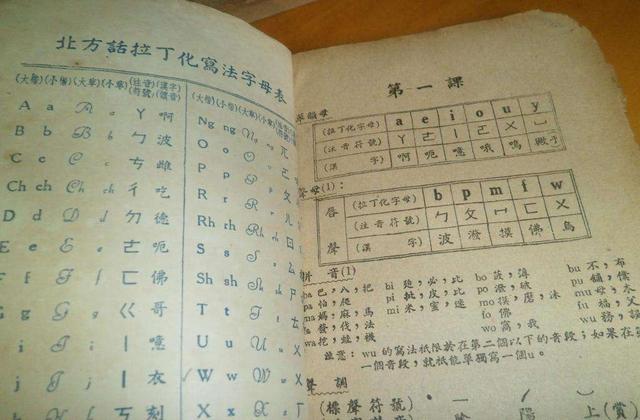 北方話拉丁化寫法字母表
(大聲)(小聲)(大草)(小草)(注音符號)(漢字讀音)
A a A a ㄚ 啊
B b B b ㄅ 波
C c C c ㄘ 雌
Ch ch Ch ch ㄔ 吃
D d D d ㄉ 德
E e E e ㄜ 呃
F f F f ㄈ 佛
G g G g ㄍ 哥
I i I i ㄧ 噫
J j J j ㄧ 衣
ㄎ 刻
Ng ng Ng ng ㄫ
O o O o ㄛ
P p P p ㄆ
R r R r ㄦ
Rh rh Rh rh ㄖ
S s S s ㄙ
Sh sh Sh sh ㄕ
T t T t ㄊ
U u U u ㄨ
W w W w ㄨ
第一課
單韻母
(拉丁化字母) a e i o u y
(注音符號) ㄚ ㄜ ㄧ ㄛ ㄨ ㄩ
(漢字) 啊 呃 噫 哦 嗚
聲母(1):
唇聲
(拉丁化字母) b p m f w
(注音符號) ㄅ ㄆ ㄇ ㄈ ㄨ
(漢字) 波 潑 摸 佛 烏
拼音(1)
ba 巴，八，把 bi 逼，必，比 bo 菠，薄 bu 不，布
pa 怕，爬 pi 批，皮，匹 po 潑，破 pu 鋪，僕
ma 媽，麻，馬 mi 米，蜜，迷 mo 摸，磨，沫 mu 母，木
fa 發，伐，法 fo 佛 fu 福，父
wa 挖，蛙，襪 wo 窩，我 wu 務，誤
注意：wu的寫法祇限於在第二個以下的音段；如果在
一個音段，就祇能單獨寫一個u。
聲調
(標聲符號)
陰 陽 上(賞)